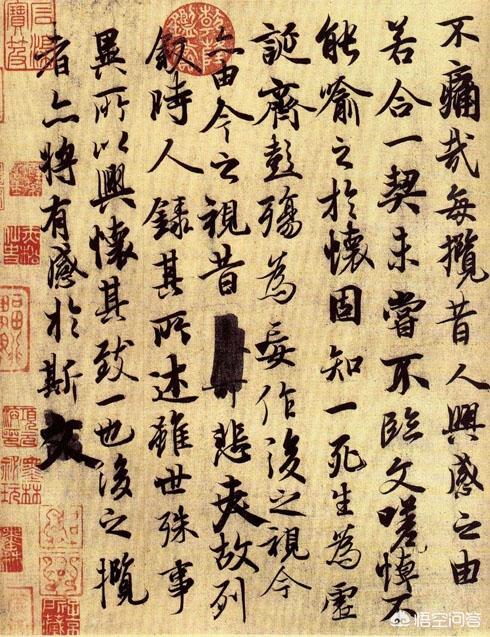 不痛哉每攬昔人興感之由
若合一契未嘗不臨文嗟悼不
能喻之於懷固知一死生為虛
誕齊彭殤為妄作後之視今
亦由今之視昔悲夫故列
叙時人錄其所述雖世殊事
異所以興懷其致一也後之攬
者亦將有感於斯文
悟空问答